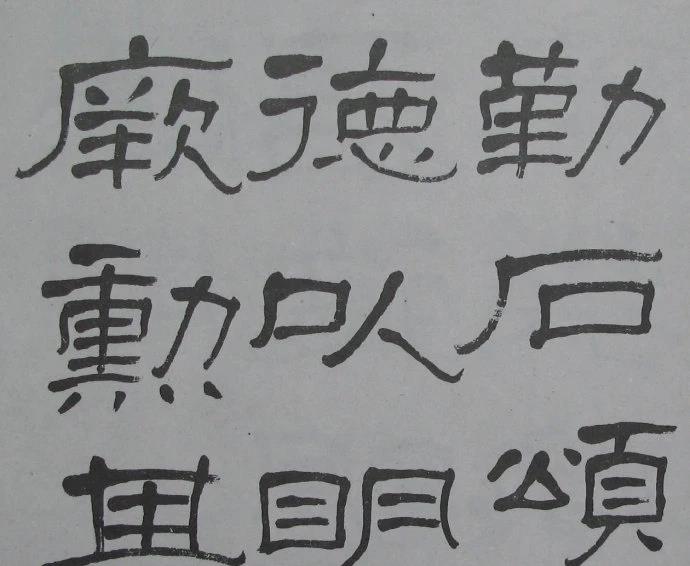 勒石頌
德以明
厥勳其